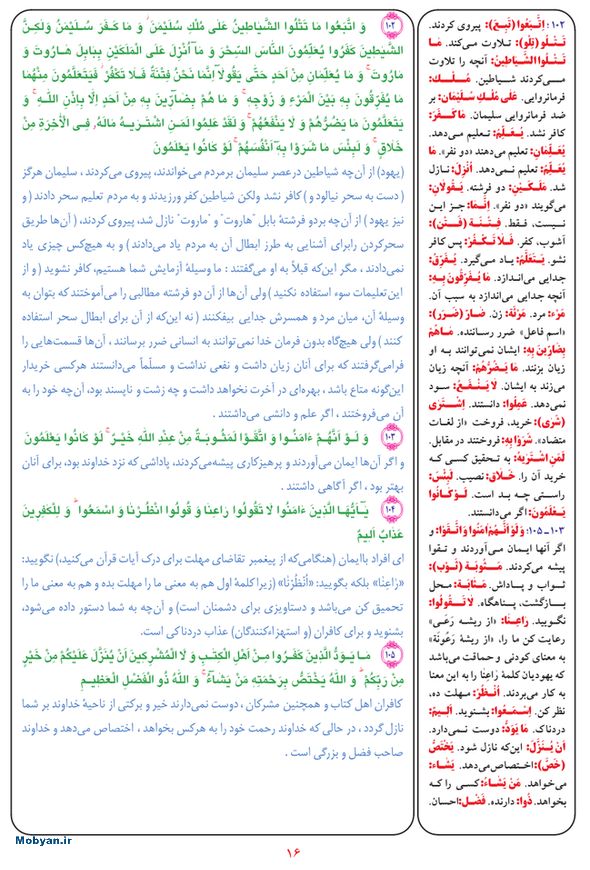 ۱۰۲ وَ اتَّبَعُوا مَا تَتْلُوا الشَّيَاطِينُ عَلَى مُلْكِ سُلَيْمَنَ ۖ وَ مَا كَـفَـرَ سُلَيْمَنُ وَلَكِنَّ
الشَّيَطِينَ كَفَرُوا يُعَلِّمُونَ النَّاسَ السِّحْرَ وَ مَآ اُنْزِلَ عَلَى الْمَلَكَيْنِ بِبَابِلَ هَـارُوتَ وَ
مَارُوتَ ۚ وَ مَا يُعَلِّمَانِ مِنْ اَحَدٍ حَتَّى يَقُولَآ اِنَّمَا نَحْنُ فِتْنَةٌ فَلَا تَكْفُرْ ۖ فَيَتَعَلَّمُونَ مِنْهُمَا
مَا يُفَرِّقُونَ بِهِ بَيْنَ الْمَرْءِ وَ زَوْجِهِ ۚ وَ مَا هُمْ بِضَآرِّينَ بِهِ مِنْ اَحَدٍ اِلَّا بِاِذْنِ اللَّهِ ۚ وَ
يَتَعَلَّمُونَ مَا يَضُرُّهُمْ وَ لَا يَنْفَعُهُمْ ۚ وَ لَقَدْ عَلِمُوا لَمَنِ اشْتَرَيهُ مَالَهُ فِى الْآخِرَةِ مِنْ
خَلَاقٍ ۚ وَ لَبِئْسَ مَا شَرَوْا بِهِ اَنْفُسَهُمْ ۚ لَوْ كَانُوا يَعْلَمُونَ
(یهود) از آن‌چه شیاطین درعصر سلیمان برمردم می‌خواندند، پیروی می‌کردند، سلیمان هرگز
( دست به سحر نیالود و ) کافر نشد ولکن شیاطین کفر ورزیدند و به مردم تعلیم سحر دادند ( و
نیز یهود ) از آن‌چه بردو فرشتهٔ بابل "هاروت" و "ماروت" نازل شد، پیروی کردند، ( آن‌ها طریق
سحرکردن رابرای آشنایی به طرز ابطال آن به مردم یاد می‌دادند ) و به هیچ‌کس چیزی یاد
نمی‌دادند ، مگر این‌که قبلاً به او می‌گفتند : ما وسیلهٔ آزمایش شما هستیم، کافر نشوید ( و از
این‌تعلیمات سوء استفاده نکنید ) ولی آن‌ها از آن دو فرشته مطالبی را می‌آموختند که بتوان به
وسیلهٔ آن، میان مرد و همسرش جدایی بیفکنند ( نه این‌که از آن برای ابطال سحر استفاده
کنند ) ولی هیچ‌گاه بدون فرمان خدا نمی‌توانند به انسانی ضرر برسانند ، آن‌ها قسمت‌هایی را
فرامی‌گرفتند که برای آنان زیان داشت و نفعی نداشت و مسلّماً می‌دانستند هرکسی خریدار
این‌گونه متاع باشد ، بهره‌ای در آخرت نخواهد داشت و چه زشت و ناپسند بود، آن‌چه خود را به
آن می‌فروختند ، اگر علم و دانشی می‌داشتند .
۱۰۳ وَ لَـوْ اَنَّـهُـمْ ءَامَـنُـوا وَ اتَّـقَـوْا لَمَثُوبَـةٌ مِنْ عِنْدِ اللَّهِ خَيْـرٌ ۚ لَوْ كَانُوا يَعْلَمُونَ
و اگر آن‌ها ایمان می‌آوردند و پرهیزکاری پیشه‌می‌کردند، پاداشی که نزد خداوند بود، برای آنان
بهتر بود ، اگر آگاهی داشتند .
۱۰۴ يَـآاَيُّهَـا الَّذِينَ ءَامَنُوا لَا تَقُولُوا رَاعِنَا وَ قُولُوا انْظُـرْنَا وَ اسْمَعُوا ۗ وَ لِلْكَفِرِينَ
عَذَابٌ اَلِيمٌ
ای افراد باایمان (هنگامی‌که از پیغمبر تقاضای مهلت برای درک آیات قرآن می‌کنید،) نگویید:
«رَاعِنَا» بلکه بگویید: «اُنْظُرْنَا» (زیراکلمهٔ اول هم به معنی ما را مهلت بده و هم به معنی ما را
تحمیق کن می‌باشد و دستاویزی برای دشمنان است) و آن‌چه به شما دستور داده می‌شود،
بشنوید و برای کافران (و استهزاءکنندگان) عذاب دردناکی است.
۱۰۵ مَـا يَـوَدُّ الَّذِينَ كَفَرُوا مِـنْ اَهْلِ الْكِتَبِ وَ لَا الْمُشْرِكِينَ اَنْ يُنَزَّلَ عَلَيْكُمْ مِنْ خَيْرٍ
مِنْ رَبِّكُمْ ۗ وَ اللَّهُ يَخْتَصُّ بِرَحْمَتِهِ مَنْ يَشَآءُ ۚ وَ اللَّهُ ذُو الْفَضْلِ الْعَظِيمِ
کافران اهل کتاب و همچنین مشرکان ، دوست نمی‌دارند خیر و برکتی از ناحیهٔ خداوند بر شما
نازل گردد ، در حالی که خداوند رحمت خود را به هرکس بخواهد ، اختصاص می‌دهد و خداوند
صاحب فضل و بزرگی است .
۱۰۲ : اِتَّبَعُوا (تَبِعَ): پیروی کردند.
تَـتْـلُو (تِلْو): تـلاوت مـی‌کند. مَـا
تَـتْـلُوا الشَّيَاطِينُ: آنچه را تلاوت
مـی‌کـردند شـیاطین. مُـلْـك:
فرمانروایی. عَلَى مُلْكِ سُلَيْمَان: بر
ضد فرمانروایی سلیمان. مَا كَـفَـرَ:
کافر نشد. یُعَلِّمُ: تـعلیم مـی‌دهد.
يُعَلِّمَانِ: تعلیم می‌دهند «دو نفر». مَا
يُعَلِّمُ: تعلیم نـمی‌دهد. اُنْزِلَ: نـازل
شد. مَلَـكَـيْنِ: دو فرشته. يَقُولَانِ:
می‌گویند «دو نفر». اِنَّمَا: جـز ایـن
نیست، فـقط. فِـتْـنَـة (فَـتْـن):
آشوب، کفر. فَـلَا تَـكْـفُـرْ: پس کافر
نشو. يَـتَعَلَّمُ: یـاد مـی‌گیرد. يُفَرِّقُ:
جدایی می‌اندازد. مَا يُفَرِّقُونَ بِهِ:
آنچه جدایی می‌اندازد به سبب آن.
مَرْء: مرد. مَرْئَة: زن. ضَـارّ (ضَرَر):
«اسم فاعل» ضرر رسـاننده. مَـاهُمْ
بِضَارِّينَ بِهِ: ایشان نمی‌توانند به او
زیان بزنند. مَا يَضُرُّهُمْ: آنچه زیان
می‌زند به ایشان. لَا يَـنْـفَعُ: سـود
نمی‌دهد. عَلِمُوا: دانستند. اِشْتَرَى
(شَرْى): خرید، فروخت «از لغات
متضاد». شَرَوْا بِهِ: فروختند در مقابل.
لَمَنِ اشْتَرَيهُ: به تحقیق کسی کـه
خرید آن را. خَلَاق: نصیب. لَبِئْسَ:
راستی چه بـد است. لَـوْ كَـانُوا
يَعْلَمُونَ: اگر می‌دانستند.
۱۰۳ ـ ۱۰۵: وَ لَوْ اَنَّهُمْ اٰمَنُوا وَ اتَّقَوْا: و
اگر آنها ایمان مـی‌آوردند و تـقوا
پیشه می‌کردند. مَثُوبَة (ثَوْب):
ثواب و پاداش. مَثَـابَة: مـحل
بازگشت، پناهگاه. لَا تَـقُولُوا:
نگویید. رَاعِنَا: «از ریشه رَعْی»
رعایت کن ما را، «از ریشهٔ رَعُونَة»
به معنای کودنی و حماقت می‌باشد
که یهودیان کلمهٔ رَاعِنَا را به این معنا
به کار می‌بردند. اُنْظُرْ: مهلت ده،
نظر کن. اِسْمَعُوا: بشنوید. اَلِيمٌ:
دردناک. مَا يَوَدُّ: دوست نمی‌دارد.
اَنْ يُنَزَّلَ: این‌که نازل شود. يَخْتَصُّ
(خَصّ): اختصاص‌می‌دهد. يَشَاءُ:
می‌خواهد. مَنْ يَشَاءُ: کسی را که
بخواهد. ذُوا: دارنده. فَضْل: احسان.
Mobyan.ir
۱۶